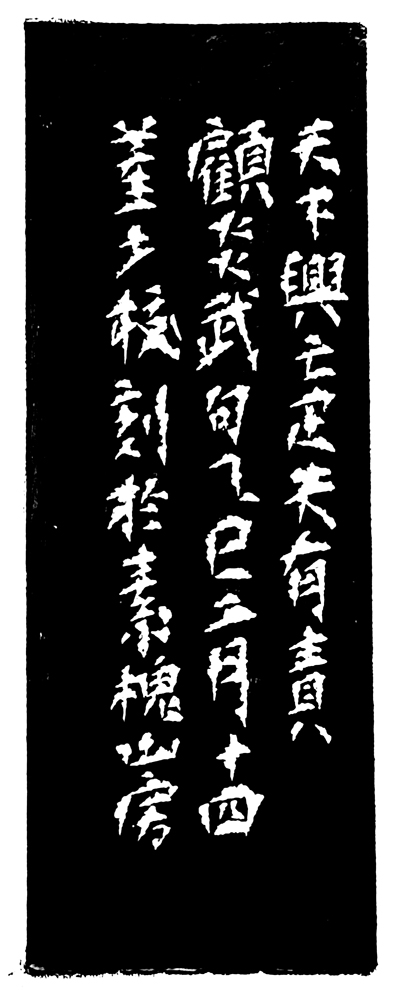 天下興亡疋夫有責
顧炎武句乙巳二月十四
夕校刻於素槐山房